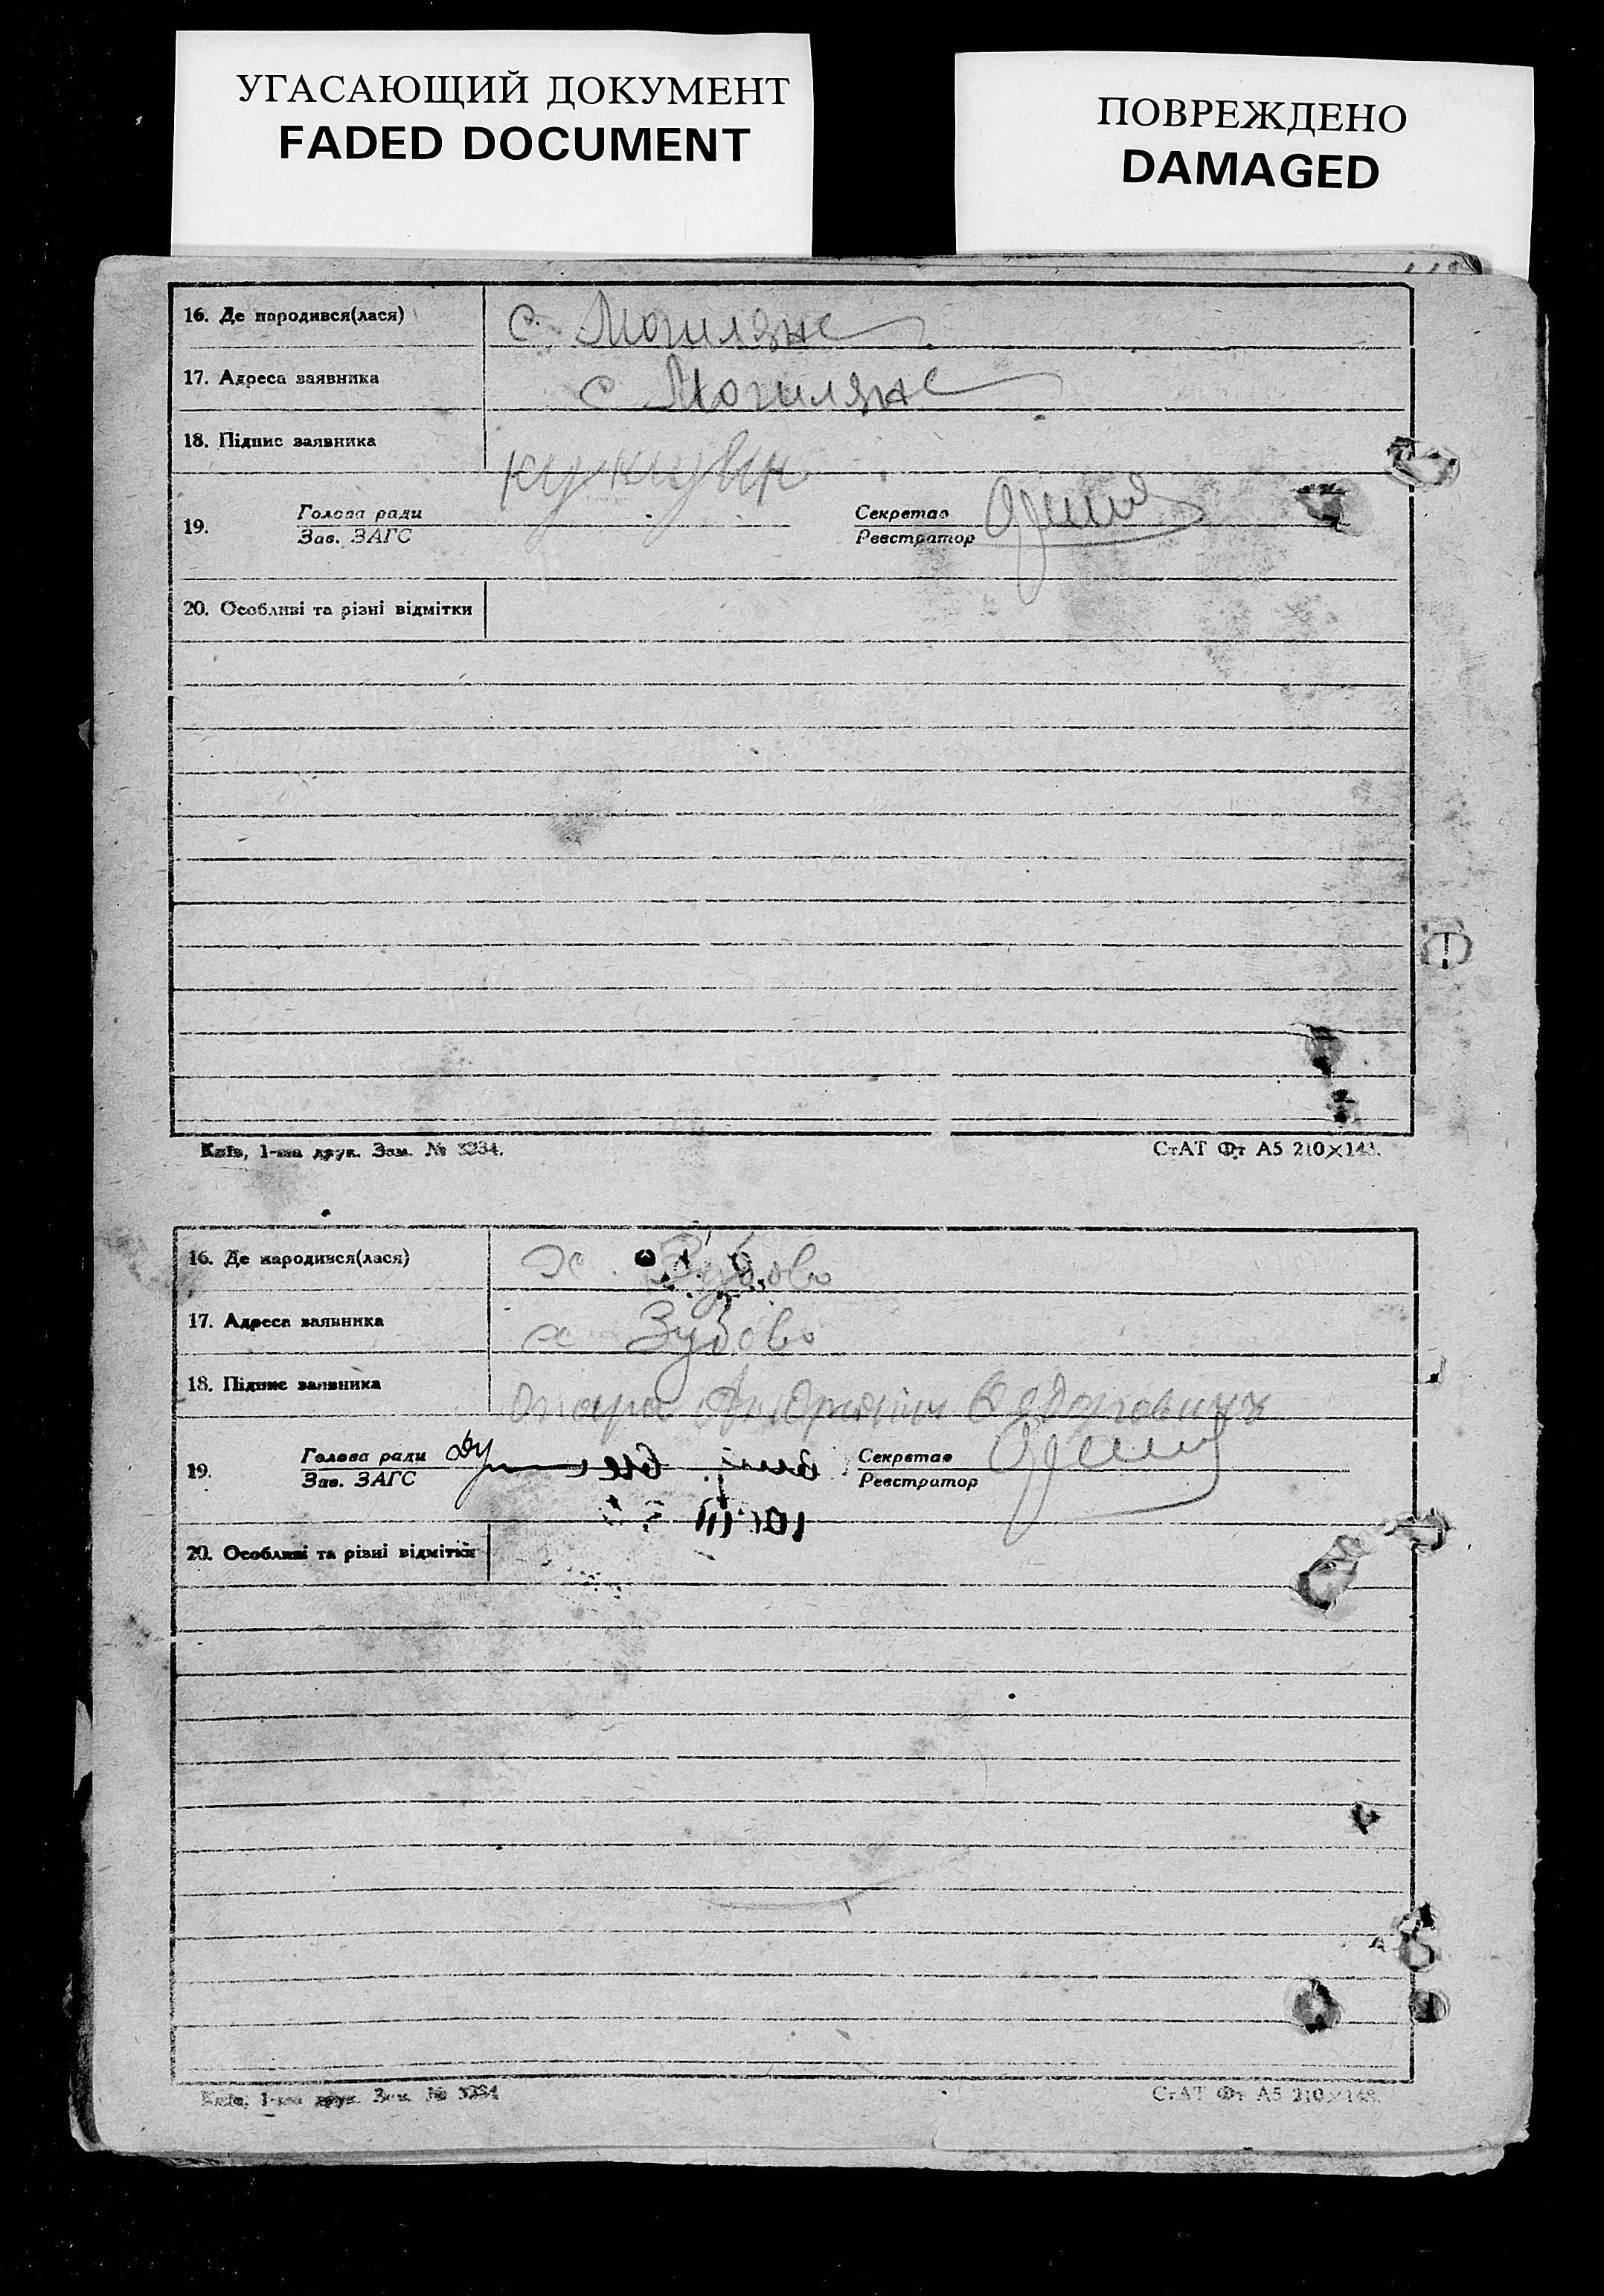 УГАСАЮЩИЙ ДОКУМЕНТ
FADED DOCUMENT
ПОВРЕЖДЕНО
DAMAGED
16. Де народився(лася) с. Могиляне
17. Адреса заявника с Могиляне
18. Підпис заявника
19. Голова ради
Зав. ЗАГС
Секретар
Реєстратор
20. Особливі та різні відмітки
Київ, 1-ша друк. Зам. № 3234.
СтАТ Фт А5 210×148.
16. Де народився(лася) х. Зубово
17. Адреса заявника х Зубово
18. Підпис заявника
19. Голова ради
Зав. ЗАГС
Секретар
Реєстратор
20. Особливі та різні відмітки
Київ, 1-ша друк. Зам. № 3234
СтАТ Фт А5 210×148.